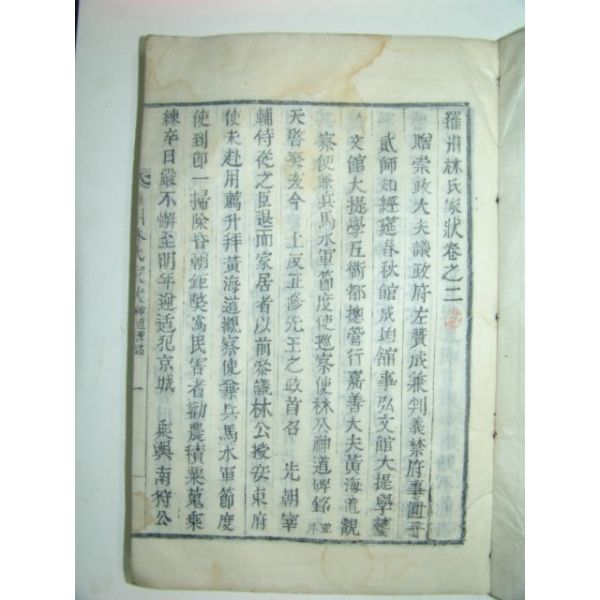 羅州林氏家狀卷之二
贈崇政大夫議政府左贊成兼判義禁府事世子
貳師知經筵春秋館成均館事弘文館大提學藝
文館大提學五衛都摠管行嘉善大夫黃海道觀
察使兼兵馬水軍節度使巡察使林公神道碑銘 並序
天啓癸亥今 上反正修先王之政首召 先朝宰
輔侍從之臣退而家居者以前參議林公授安東府
使未赴用薦升拜黃海道觀察使兼兵馬水軍節度
使到郎一掃除昏朝鉅弊爲民害者勸農積粟蒐乘
練卒日嚴不懈至明年逆适犯京城 乘輿南狩公
州林氏家狀 神道碑銘 一